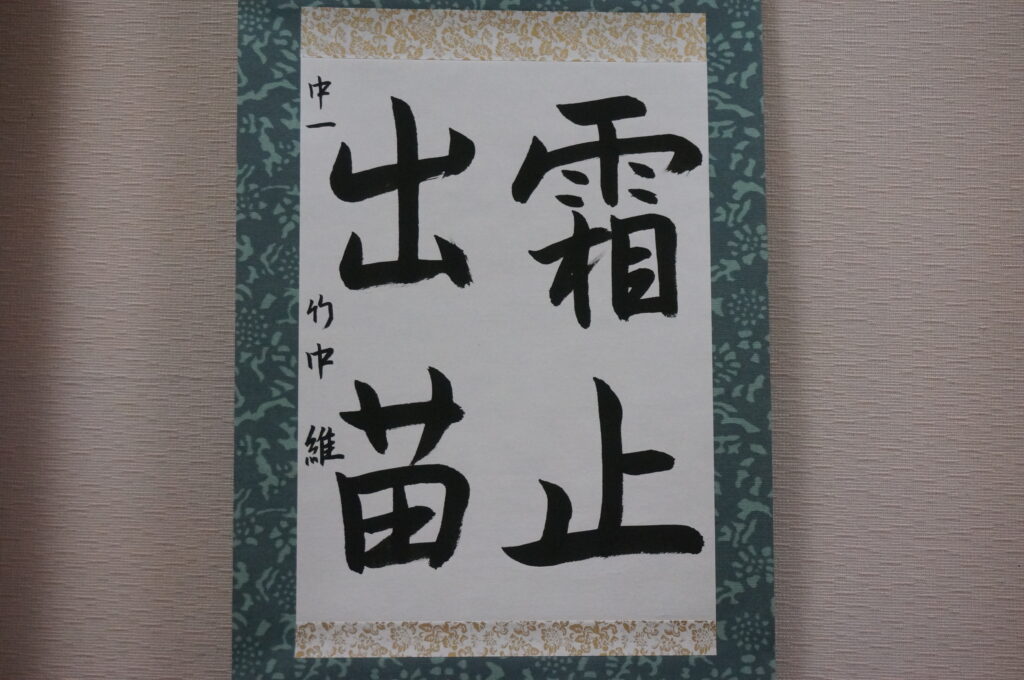 霜止
出苗
中一 竹中 維